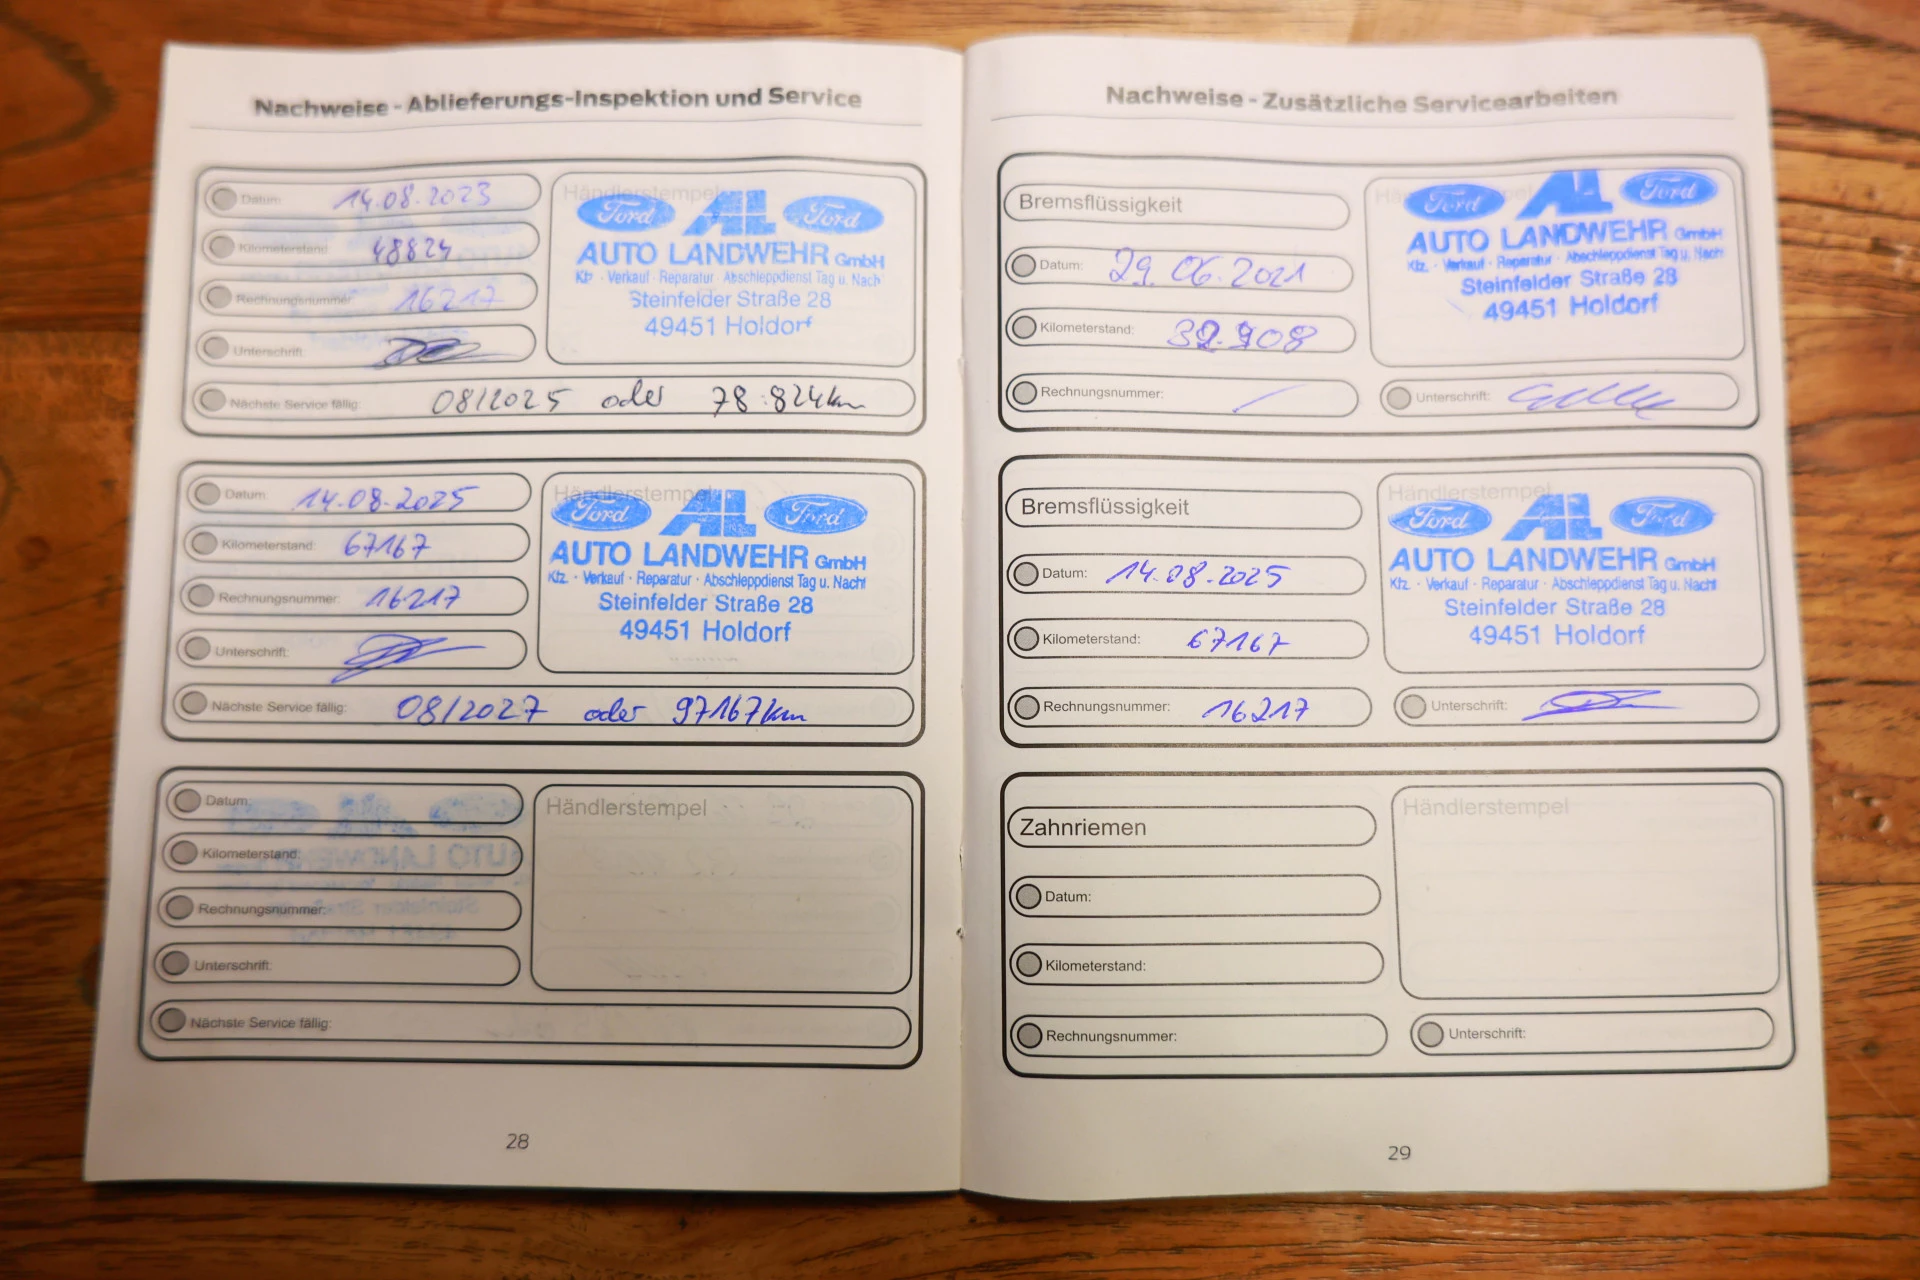 Nachweise - Ablieferungs-Inspektion und Service
Datum: 14.08.2023
Kilometerstand 48824
Rechnungsnummer: 16217
Unterschrift:
Händlerstempel
Ford AL Ford
AUTO LANDWEHR GmbH
Kfz. · Verkauf · Reparatur · Abschleppdienst Tag u. Nacht
Steinfelder Straße 28
49451 Holdorf
Nächste Service fällig: 08/2025 oder 78.824km
Datum: 14.08.2025
Kilometerstand: 67167
Rechnungsnummer: 16217
Unterschrift:
Händlerstempel
Ford AL Ford
AUTO LANDWEHR GmbH
Kfz. · Verkauf · Reparatur · Abschleppdienst Tag u. Nacht
Steinfelder Straße 28
49451 Holdorf
Nächste Service fällig: 08/2027 oder 97167km
Datum:
Kilometerstand:
Rechnungsnummer:
Unterschrift:
Händlerstempel
Nächste Service fällig:
28
Nachweise - Zusätzliche Servicearbeiten
Bremsflüssigkeit
Datum: 29.06.2021
Kilometerstand:
Rechnungsnummer: /
Ford AL Ford
AUTO LANDWEHR GmbH
Kfz. · Verkauf · Reparatur · Abschleppdienst Tag u. Nacht
Steinfelder Straße 28
49451 Holdorf
Unterschrift:
Bremsflüssigkeit
Datum: 14.08.2025
Kilometerstand: 67167
Rechnungsnummer: 16217
Händlerstempel
Ford AL Ford
AUTO LANDWEHR GmbH
Kfz. · Verkauf · Reparatur · Abschleppdienst Tag u. Nacht
Steinfelder Straße 28
49451 Holdorf
Unterschrift:
Zahnriemen
Datum:
Kilometerstand:
Rechnungsnummer:
Händlerstempel
Unterschrift:
29